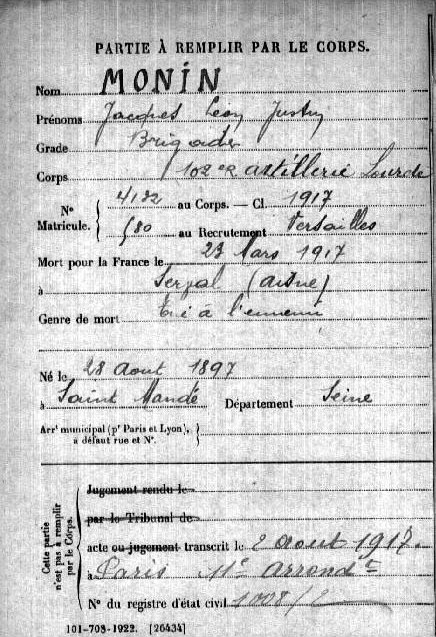 PARTIE À REMPLIR PAR LE CORPS.
Nom MONIN
Prénoms Jacques Léon
Grade Brigadier
Corps 102e artillerie Lourde
N° Matricule. { 4132 au Corps. — Cl. 1917
580 au Recrutement Versailles
Mort pour la France le 23 Mars 1917
à (Aisne)
Genre de mort Tué à l'ennemi
Né le 28 Aout 1897
à Saint Mandé Département Seine
Arrt municipal (pr Paris et Lyon),
à défaut rue et N°. {
Cette partie n'est pas à remplir par le Corps.
Jugement rendu le
par le Tribunal de
acte ou jugement transcrit le 2 Aout 1917
à Paris 11e Arrondt
N° du registre d'état civil
101-708-1922. [26434]